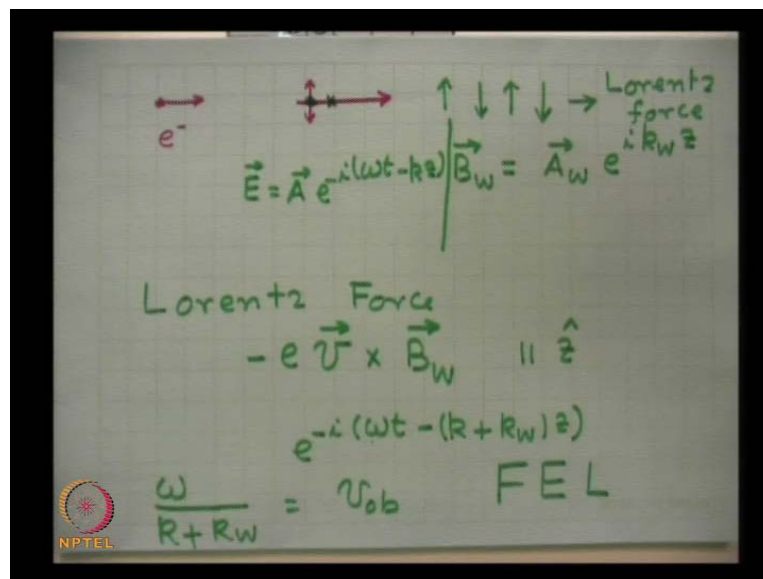 ↑ ↓ ↑ ↓ → Lorentz
force
e⁻
E⃗ = A⃗ e^{-i(ωt-kz)} | B⃗_W = A⃗_W e^{i k_W z}
Lorentz Force
- e v⃗ × B⃗_W  || ẑ
e^{-i(ωt - (k + k_W)z)}
ω/(k + k_W) = v_{ob}  FEL
NPTEL